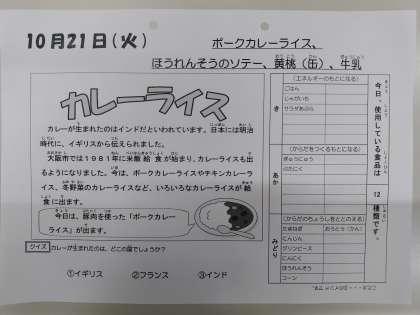 10月21日(火)
ポークカレーライス、
ほうれんそうのソテー、黄桃(缶)、牛乳
カレーライス
カレーが生まれたのはインドだといわれています。日本には明治
時代に、イギリスから伝えられました。
大阪市では1981年に米飯給食が始まり、カレーライスも出
るようになりました。今は、ポークカレーライスやチキンカレーラ
イス、冬野菜のカレーライスなど、いろいろなカレーライスが給
食に出ます。
今日は、豚肉を使った「ポークカレー
ライス」が出ます。
クイズ
カレーが生まれたのは、どこの国でしょうか?
①イギリス ②フランス ③インド
今日、使用している食品は 12 種類です。
き
(エネルギーのもとになる)
ごはん
じゃがいも
サラダあぶら
あか
(からだをつくるもとになる)
ぎゅうにゅう
ぶたにく
みどり
(からだのちょうしをととのえる)
たまねぎ おうとう(かん)
にんじん
グリンピース
にんにく
ほうれんそう
コーン